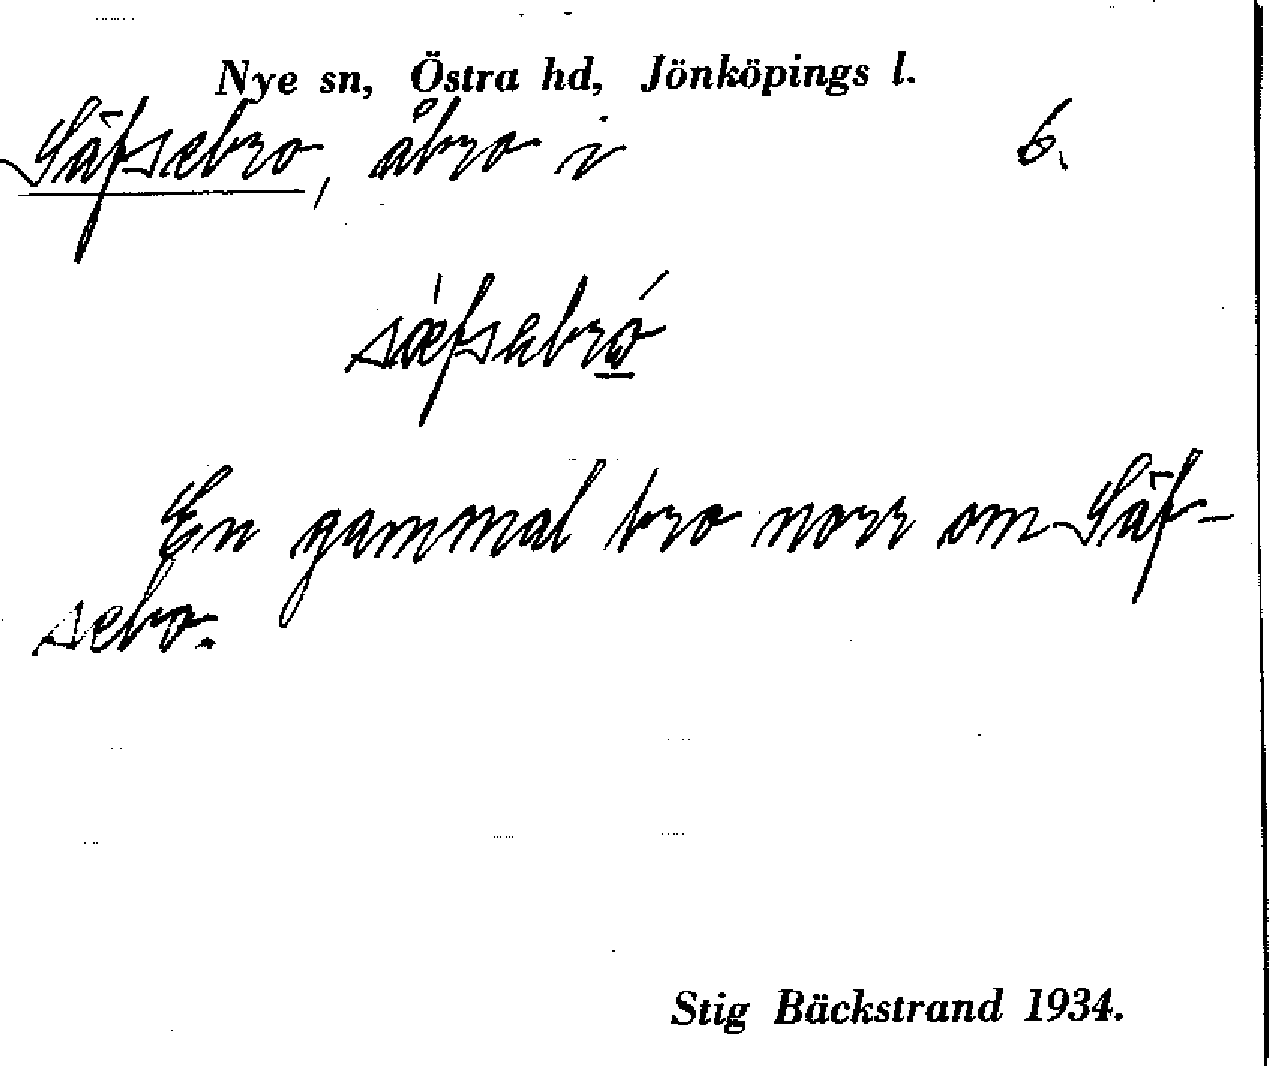 Nye sn, Östra hd, Jönköpings l.
Säfsebro, åbro i 6.
sǽfsebró
En gammal bro norr om Säf-
sebo.
Stig Bäckstrand 1934.